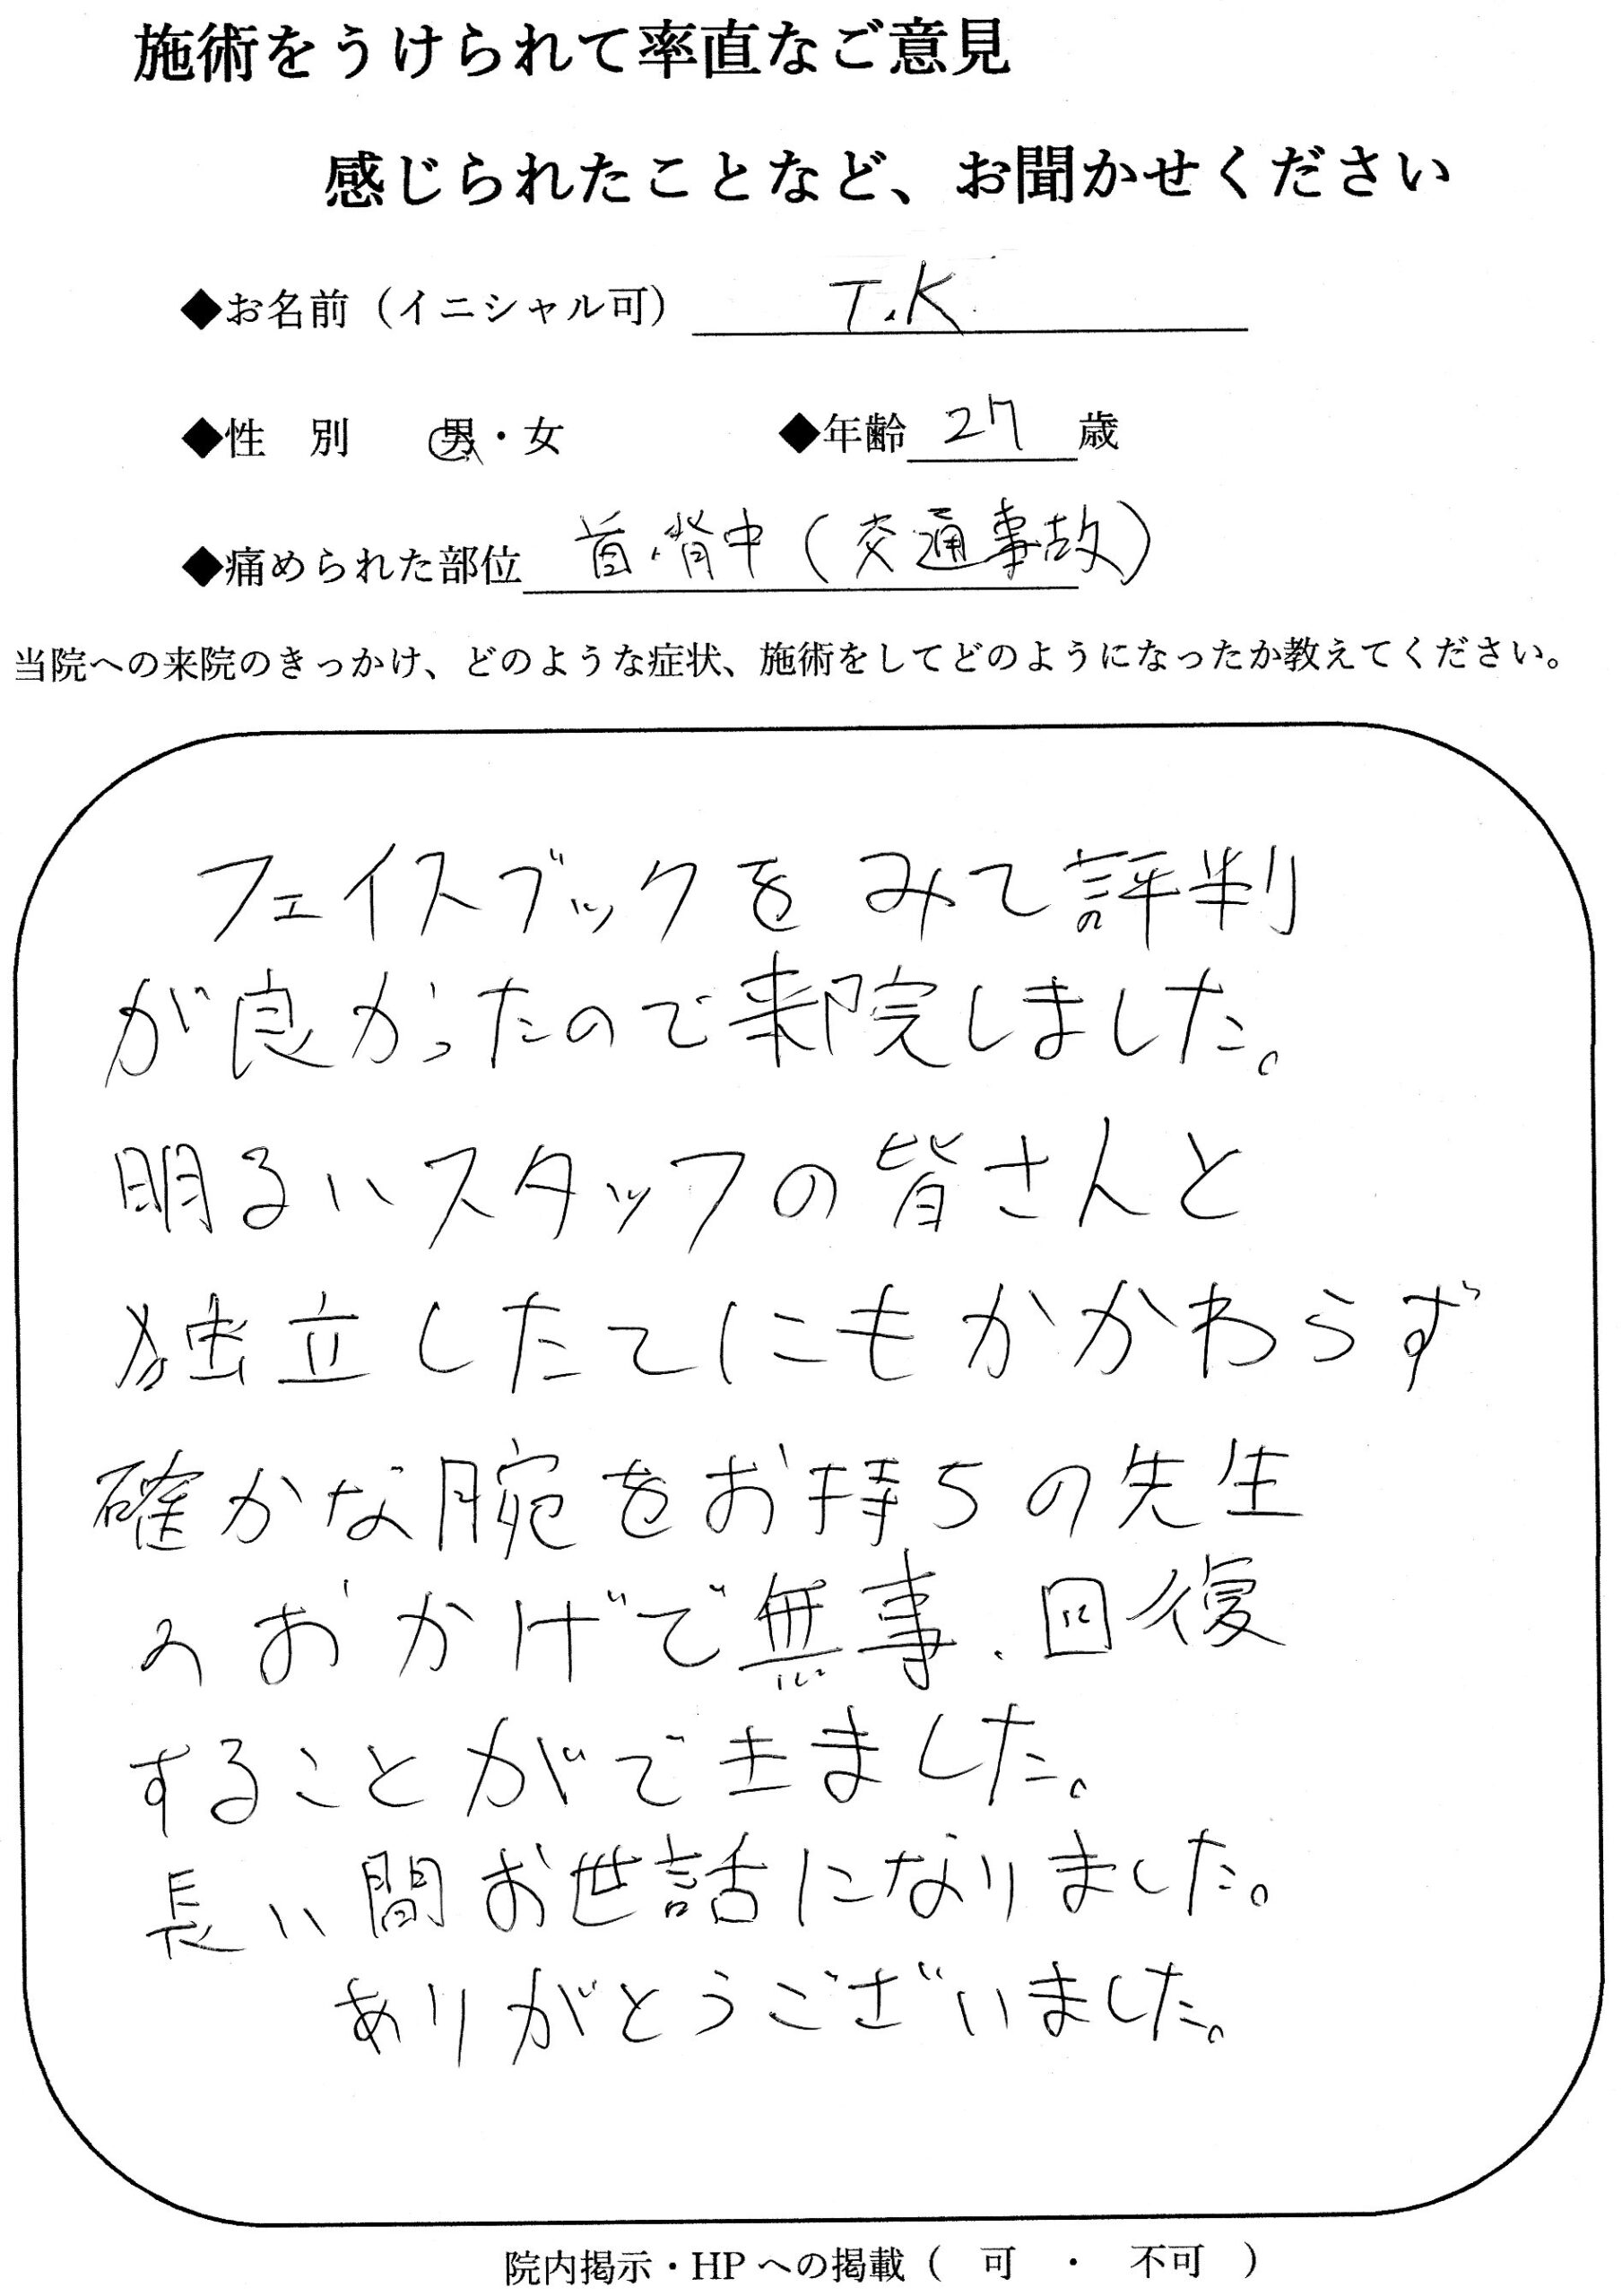 施術をうけられて率直なご意見
感じられたことなど、お聞かせください
◆お名前（イニシャル可） T.K
◆性　別　男・女　◆年齢 27 歳
◆痛められた部位 首、背中（交通事故）
当院への来院のきっかけ、どのような症状、施術をしてどのようになったか教えてください。
フェイスブックをみて評判
が良かったので来院しました。
明るいスタッフの皆さんと
独立したてにもかかわらず
確かな腕をお持ちの先生
のおかげで無事、回復
することができました。
長い間お世話になりました。
ありがとうございました。
院内掲示・HPへの掲載（　可　・　不可　）